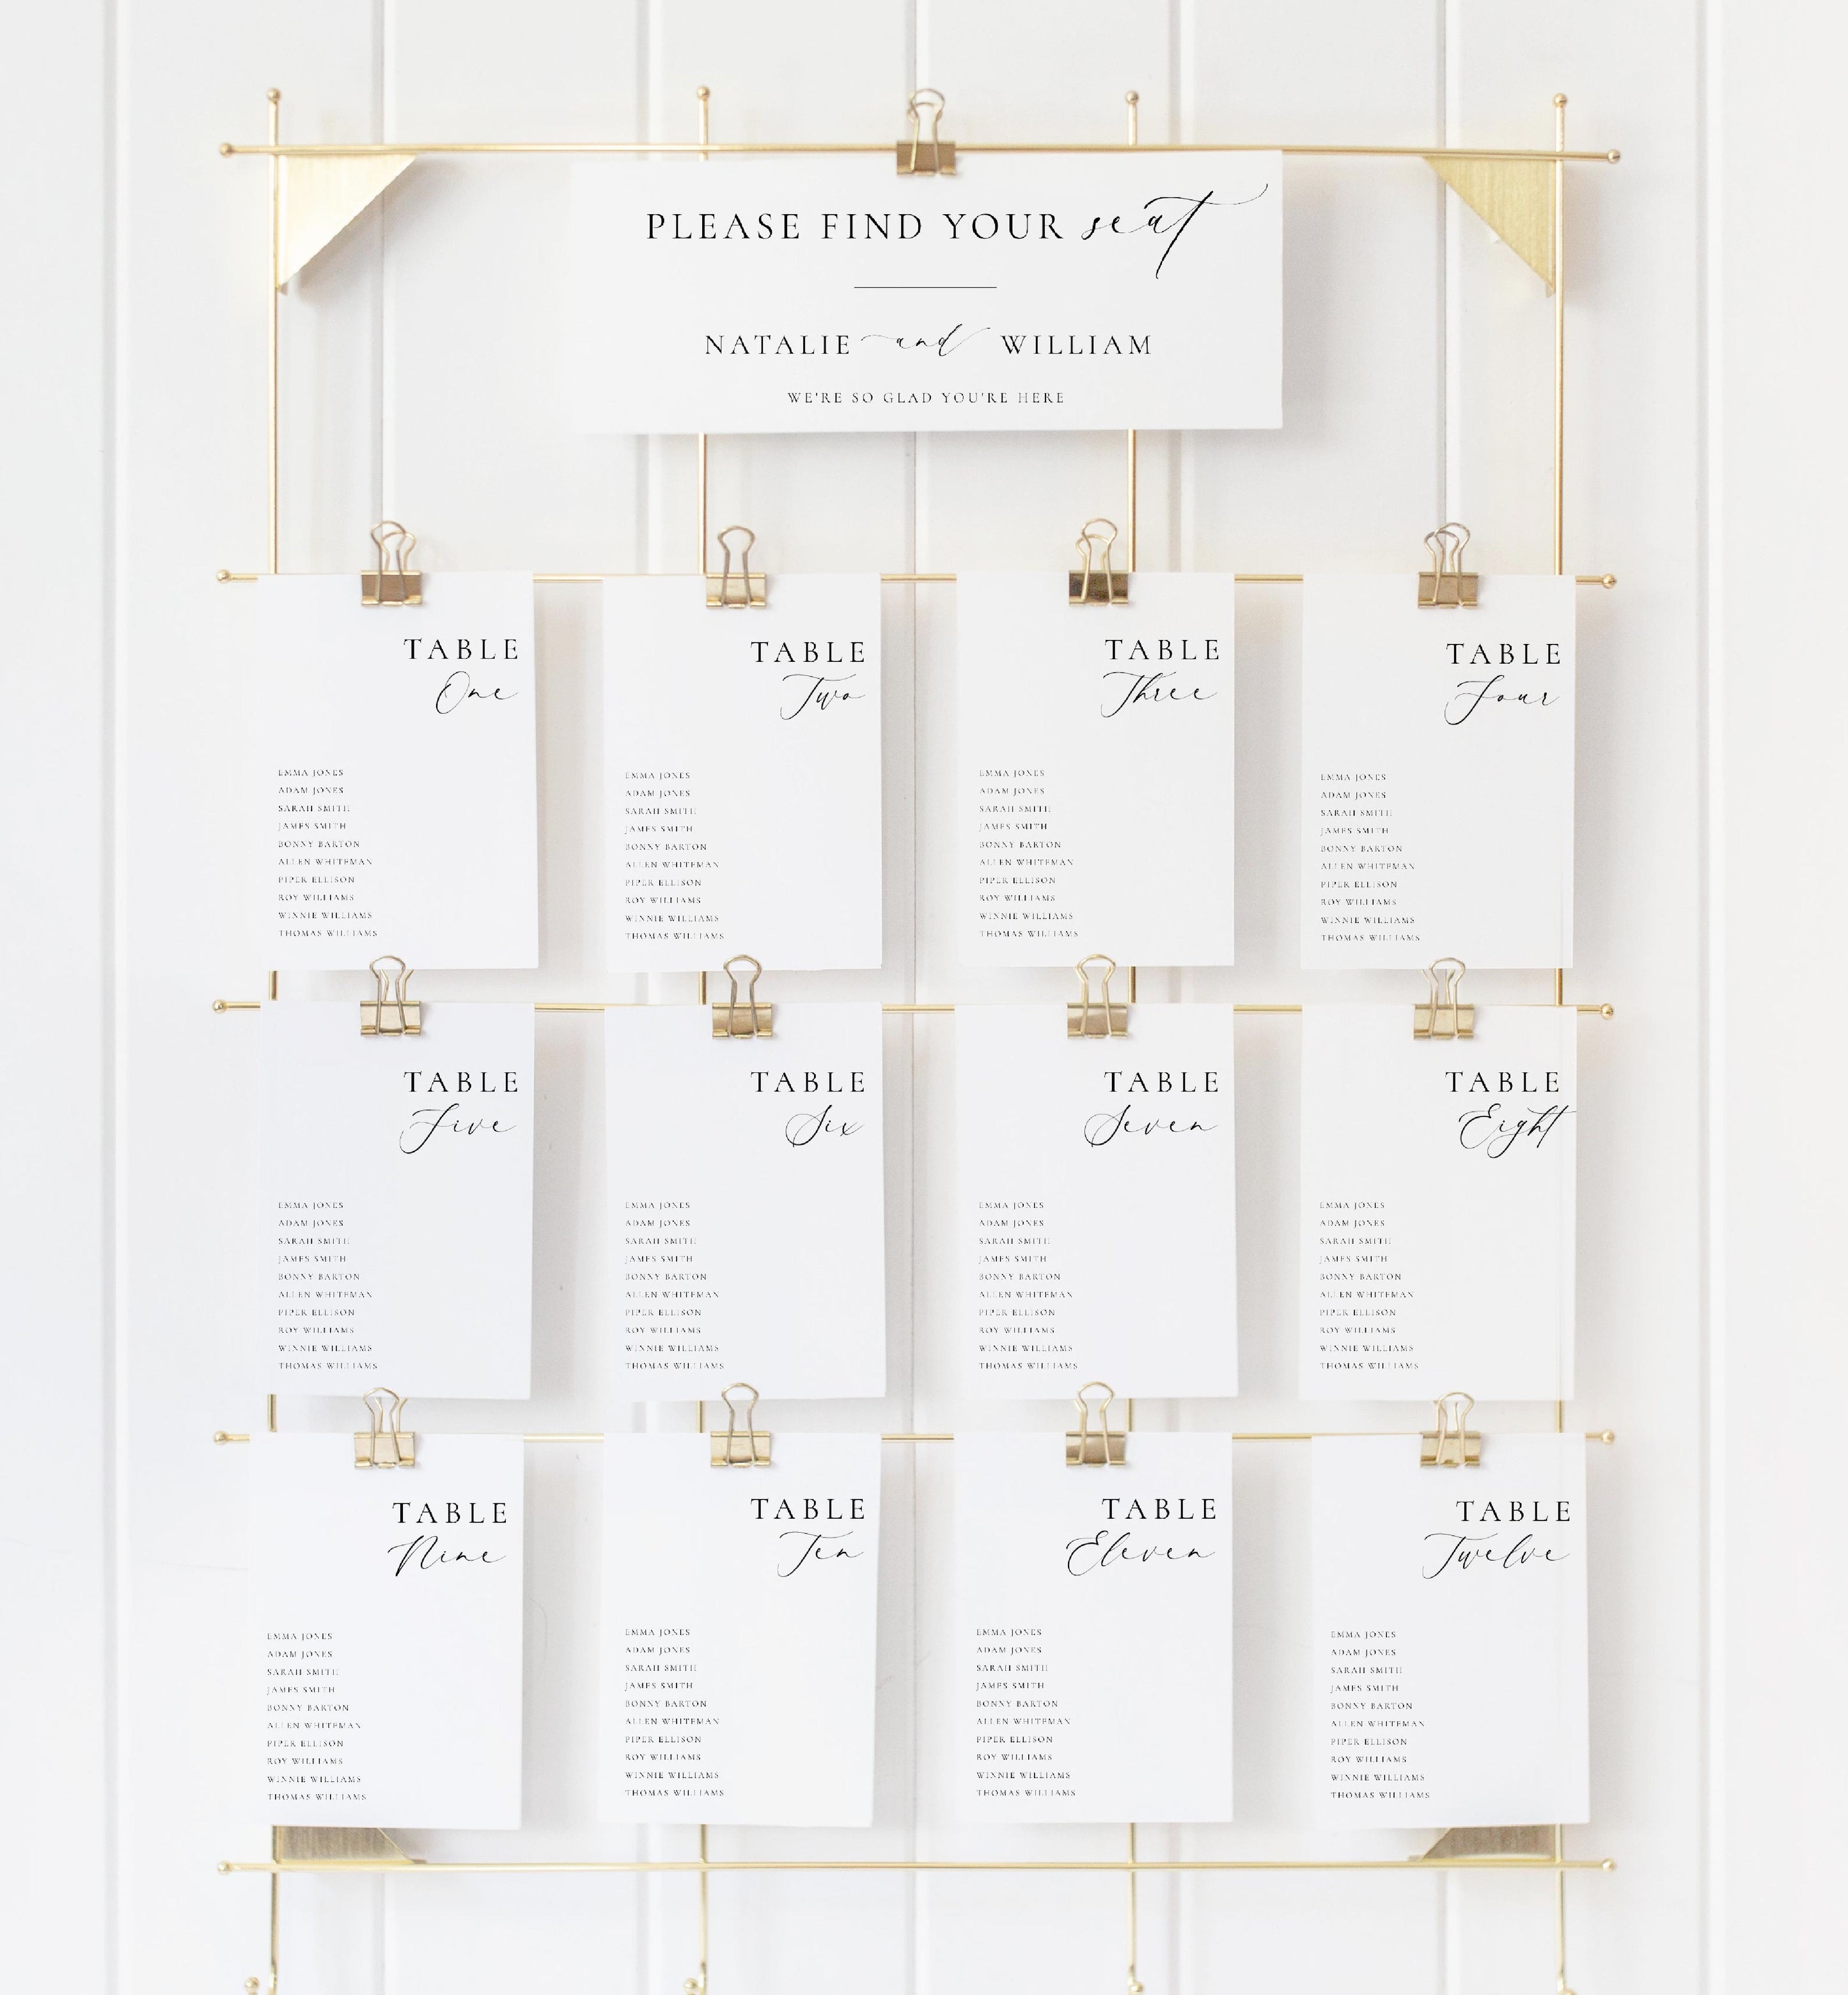 PLEASE FIND YOUR seat
NATALIE and WILLIAM
WE'RE SO GLAD YOU'RE HERE
TABLE
One
EMMA JONES
ADAM JONES
SARAH SMITH
JAMES SMITH
BONNY BARTON
ALLEN WHITEMAN
PIPER ELLISON
ROY WILLIAMS
WINNIE WILLIAMS
THOMAS WILLIAMS
TABLE
Two
EMMA JONES
ADAM JONES
SARAH SMITH
JAMES SMITH
BONNY BARTON
ALLEN WHITEMAN
PIPER ELLISON
ROY WILLIAMS
WINNIE WILLIAMS
THOMAS WILLIAMS
TABLE
Three
EMMA JONES
ADAM JONES
SARAH SMITH
JAMES SMITH
BONNY BARTON
ALLEN WHITEMAN
PIPER ELLISON
ROY WILLIAMS
WINNIE WILLIAMS
THOMAS WILLIAMS
TABLE
Four
EMMA JONES
ADAM JONES
SARAH SMITH
JAMES SMITH
BONNY BARTON
ALLEN WHITEMAN
PIPER ELLISON
ROY WILLIAMS
WINNIE WILLIAMS
THOMAS WILLIAMS
TABLE
Five
EMMA JONES
ADAM JONES
SARAH SMITH
JAMES SMITH
BONNY BARTON
ALLEN WHITEMAN
PIPER ELLISON
ROY WILLIAMS
WINNIE WILLIAMS
THOMAS WILLIAMS
TABLE
Six
EMMA JONES
ADAM JONES
SARAH SMITH
JAMES SMITH
BONNY BARTON
ALLEN WHITEMAN
PIPER ELLISON
ROY WILLIAMS
WINNIE WILLIAMS
THOMAS WILLIAMS
TABLE
Seven
EMMA JONES
ADAM JONES
SARAH SMITH
JAMES SMITH
BONNY BARTON
ALLEN WHITEMAN
PIPER ELLISON
ROY WILLIAMS
WINNIE WILLIAMS
THOMAS WILLIAMS
TABLE
Eight
EMMA JONES
ADAM JONES
SARAH SMITH
JAMES SMITH
BONNY BARTON
ALLEN WHITEMAN
PIPER ELLISON
ROY WILLIAMS
WINNIE WILLIAMS
THOMAS WILLIAMS
TABLE
Nine
EMMA JONES
ADAM JONES
SARAH SMITH
JAMES SMITH
BONNY BARTON
ALLEN WHITEMAN
PIPER ELLISON
ROY WILLIAMS
WINNIE WILLIAMS
THOMAS WILLIAMS
TABLE
Ten
EMMA JONES
ADAM JONES
SARAH SMITH
JAMES SMITH
BONNY BARTON
ALLEN WHITEMAN
PIPER ELLISON
ROY WILLIAMS
WINNIE WILLIAMS
THOMAS WILLIAMS
TABLE
Eleven
EMMA JONES
ADAM JONES
SARAH SMITH
JAMES SMITH
BONNY BARTON
ALLEN WHITEMAN
PIPER ELLISON
ROY WILLIAMS
WINNIE WILLIAMS
THOMAS WILLIAMS
TABLE
Twelve
EMMA JONES
ADAM JONES
SARAH SMITH
JAMES SMITH
BONNY BARTON
ALLEN WHITEMAN
PIPER ELLISON
ROY WILLIAMS
WINNIE WILLIAMS
THOMAS WILLIAMS